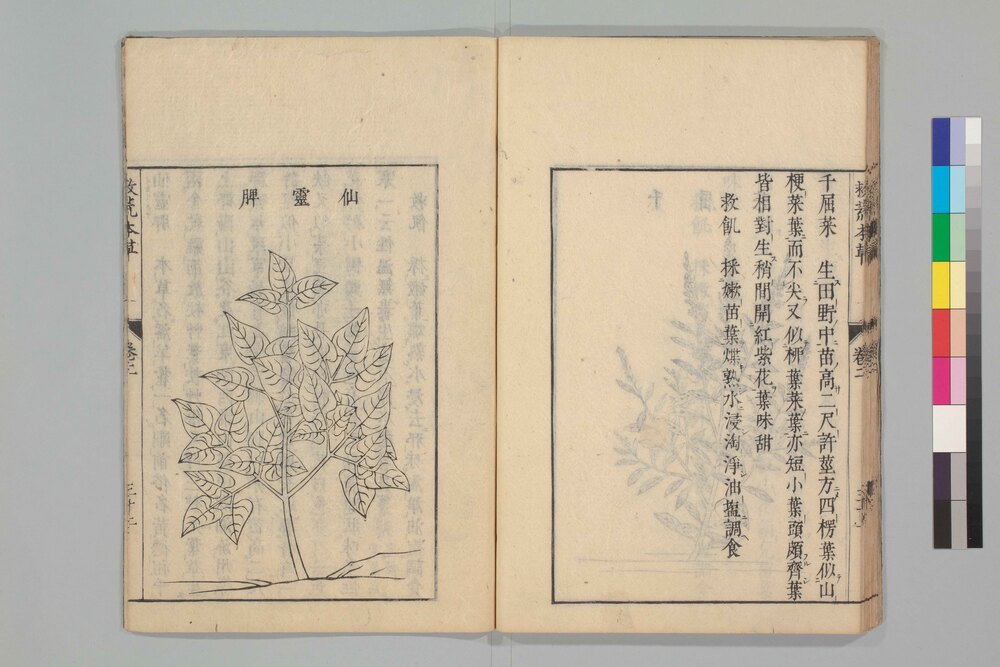 千屈菜　生田野中苗高二尺許莖方四楞葉似山
梗菜葉而不尖又似柳葉菜葉亦短小葉頭頗齊葉
皆相對生稍間開紅紫花葉味甜
救飢　採嫩苗葉煠熟水浸淘淨油塩調食
仙靈脾
救荒本草
卷二